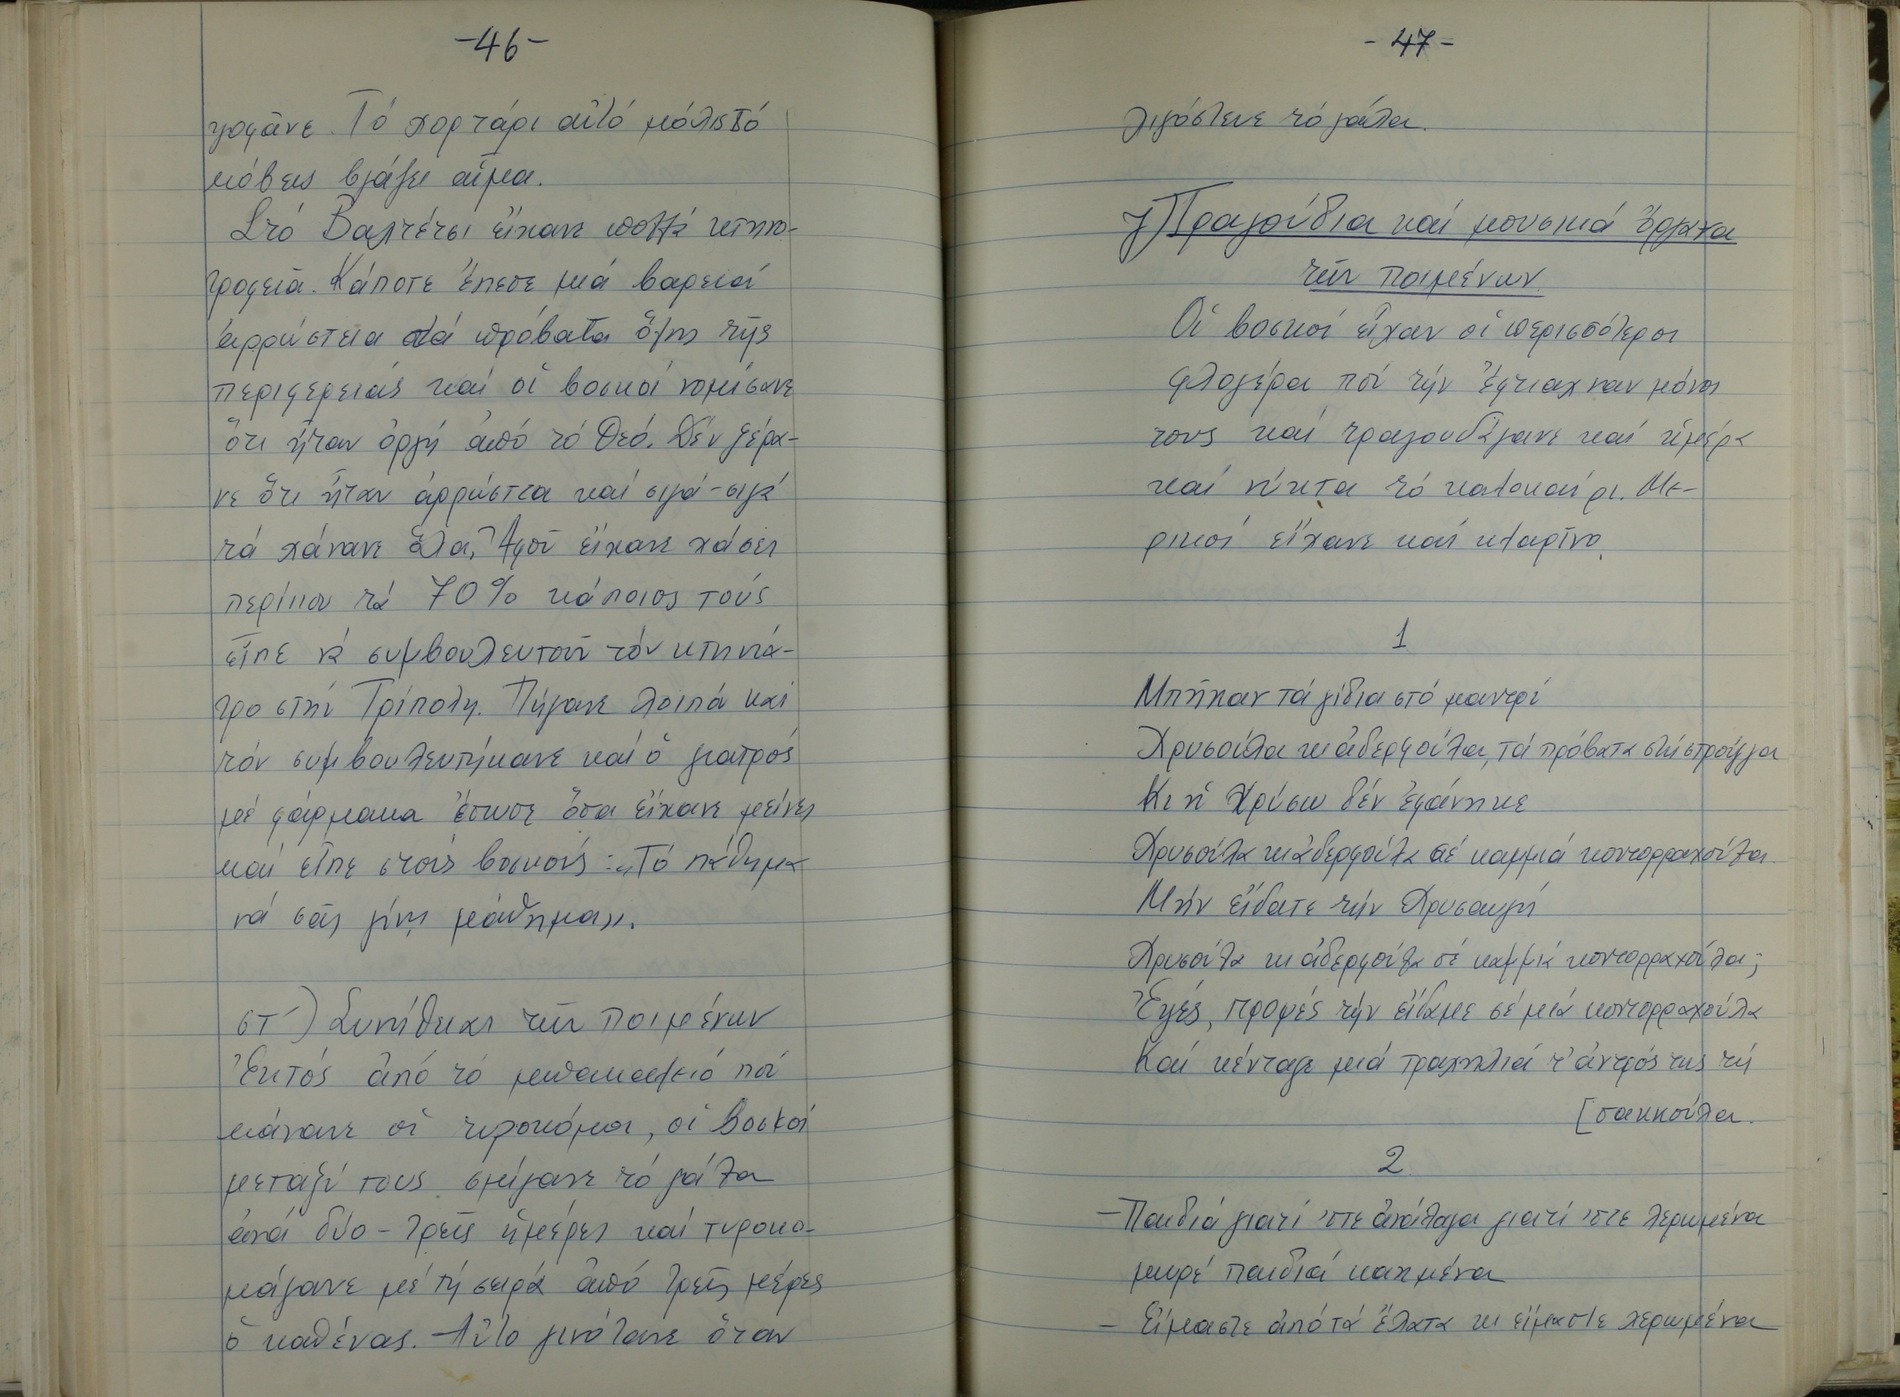 -46-
ψοφᾶνε. Τό χορτάρι αὐτό μόλις τό
κόβεις βγάζει αἷμα.
Στό Βαλτέτσι εἴχανε πολλά κτηνο-
τροφεῖα. Κάποτε ἔπεσε μιά βαρειά
ἀρρώστεια στά πρόβατα ὅλης τῆς
περιφερειάς καί οἱ βοσκοί νομίσανε
ὅτι ἦταν ὀργή ἀπό τό Θεό. Δέν ξέρα-
νε ὅτι ἦταν ἀρρώστια καί σιγά-σιγά
τά χάνανε ὅλα, Ἀφοῦ εἴχανε χάσει
περίπου τά 70% κάποιος τούς
εἶπε νά συμβουλευτοῦν τόν κτηνία-
τρο στήν Τρίπολη. Πήγανε λοιπό καί
τόν συμβουλευτήκανε καί ὁ γιατρός
μέ φάρμακα ἔσωσε ὅσα εἴχανε μείνει
καί εἶπε στούς βοσκούς: „Τό πάθημα
νά σᾶς γίνῃ μάθημα".
στ΄) Συνήθειαι τῶν Ποιμένων
Ἐκτός ἀπό τό μπακαλειό πού
κάνανε οἱ τυροκόμοι, οἱ βοσκοί
μεταξύ τους σμίγανε τό γάλα
ἀνά δύο - τρεῖς ἡμέρες καί τυροκο-
μάγανε μέ τή σειρά ἀπό τρεῖς μέρες
ὁ καθένας. Αὐτό γινότανε ὅταν
-47-
λιγόστευε τό γάλα.
ζ) Τραγούδια καί μουσικά ὄργανα
τῶν ποιμένων
Οἱ βοσκοί εἶχαν οἱ περισσότεροι
φλογέρα πού τήν ἔφτιαχναν μόνοι
τους καί τραγουδάγανε καί ἡμέρα
καί νύκτα τό καλοκαίρι. Με-
ρικοί εἴχανε καί κλαρῖνο.
1
Μπῆκαν τά γίδια στό μαντρί
Χρυσούλα κι ἀδερφούλα, τά πρόβατα στή στρούγγα
Κι ἡ Χρύσω δέν ἐφάνηκε
Χρυσούλα κι ἀδερφούλα σέ καμμιά κοντορραχούλα
Μήν εἴδατε τήν Χρυσαυγή
Χρυσούλα κι ἀδερφούλα σέ καμμιά κοντορραχούλα;
Ἐψές, προψές τήν εἴδαμε σέ μιά κοντορραχούλα
Καί κένταγε μιά τραχηλιά τ' ἀντρός της τή
[σακκούλα.
2
- Παιδιά γιατί 'στε ἀνάλλαγα γιατί 'στε λερωμένα
μωρέ παιδιά καημένα
- Εἴμαστε ἀπό τά ἔλατα κι εἴμαστε λερωμένα